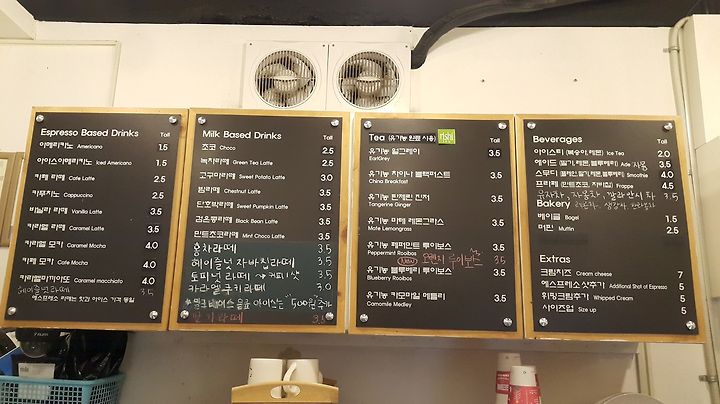 Espresso Based Drinks Tall
아메리카노 Americano 1.5
아이스아메리카노 Iced Americano 1.5
카페 라떼 Cafe Latte 2.5
카푸치노 Cappuccino 2.5
바닐라 라떼 Vanilla Latte 3.5
카라멜 라떼 Caramel Latte 3.5
카라멜 모카 Caramel Mocha 4.0
카페 모카 Cafe Mocha 4.0
카라멜마끼아또 Caramel macchiato 4.0
헤이즐넛라떼 3.5
에스프레소 라떼는 핫과 아이스 가격 동일
Milk Based Drinks Tall
초코 Choco 2.5
녹차라떼 Green Tea Latte 2.5
고구마라떼 Sweet Potato Latte 3.0
밤라떼 Chestnut Latte 3.5
단호박라떼 Sweet Pumpkin Latte 3.5
검은콩라떼 Black Bean Latte 3.5
민트초코라떼 Mint Choco Latte 3.5
홍차라떼 3.5
헤이즐넛 자바칩라떼 3.5
토피넛 라떼 → 커피샷 3.5
카라멜쿠키라떼 3.0
밀크베이스 음료 아이스는 "500원"추가
딸기라떼 3.5
Tea (유기농 원료 사용) rishi Tall
유기농 얼그레이 3.5
EarlGrey
유기농 차이나 블랙퍼스트 3.5
China Breakfast
유기농 탄제린 진저 3.5
Tangerine Ginger
유기농 마떼 레몬그라스 3.5
Mate Lemongrass
유기농 페퍼민트 루이보스 3.5
Peppermint Rooibos
New 오렌지 루이보스 3.5
유기농 블루베리 루이보스 3.5
Blueberry Rooibos
유기농 카모마일 메들리 3.5
Camomile Medley
Beverages Tall
아이스티 (복숭아,레몬) Ice Tea 2.0
에이드 (딸기,레몬,블루베리) Ade 자몽 3.5
스무디 (플레인,딸기,레몬,블루베리) Smoothie 4.0
프라페 (민트초코, 자바칩) Frappe 4.5
유자차, 자몽차, 깔라만시 차 3.5
Bakery
베이글 Bagel 1.5
머핀 Muffin 2.5
Extras
크림치즈 Cream cheese 7
에스프레소 샷추가 Additional Shot of Espresso 5
휘핑크림추가 Whipped Cream 5
사이즈업 Size up 5